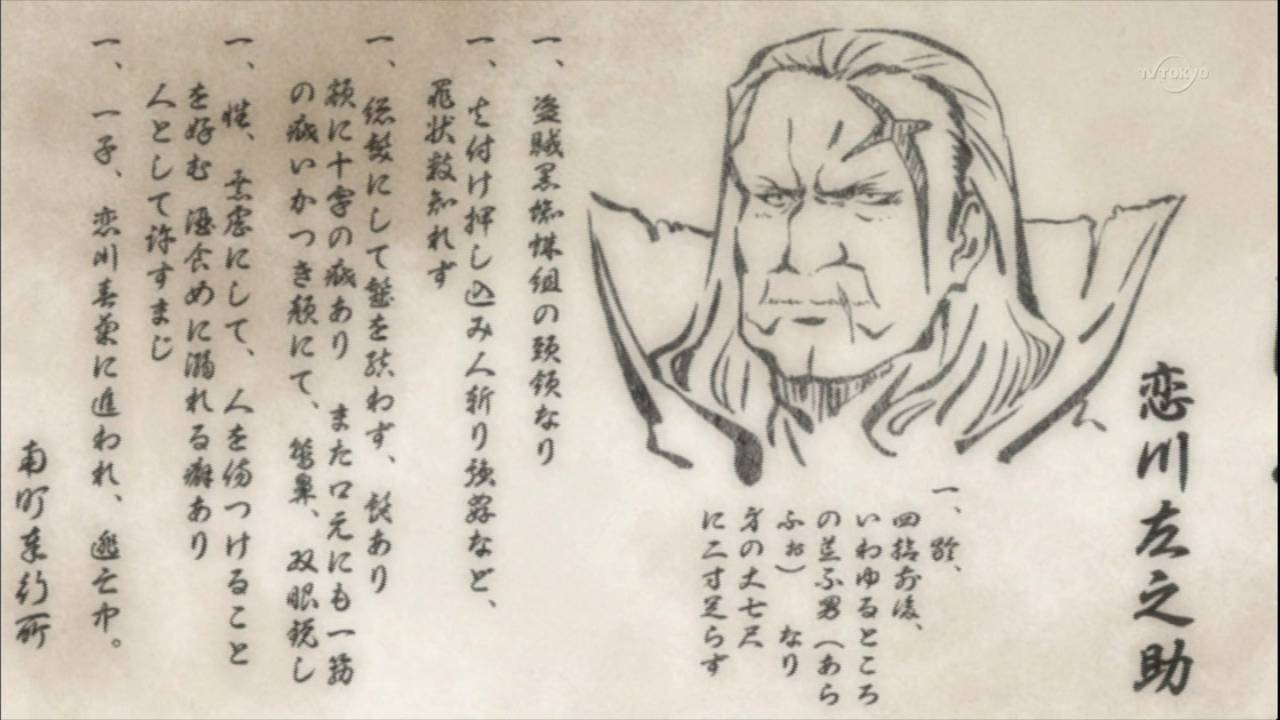 恋川左之助
一、齢、
四拾前後、
いわゆるところ
の荒ふ男（あら
ふぉ） なり
身の丈七尺
に二寸足らず
一、盗賊黒蜘蛛組の頭領なり
一、火付け押し込み人斬り強姦など、
罪状数知れず
一、総髪にして髷を結わず、髭あり
額に十字の疵あり また口元にも一筋
の疵いかつき顔にて、鷲鼻、双眼鋭し
一、性、暴虐にして、人を傷つけること
を好む 酒食めに溺れる癖あり
人として許すまじ
一、一子、恋川春菊に追われ、逃亡中。
南町奉行所
TV TOKYO